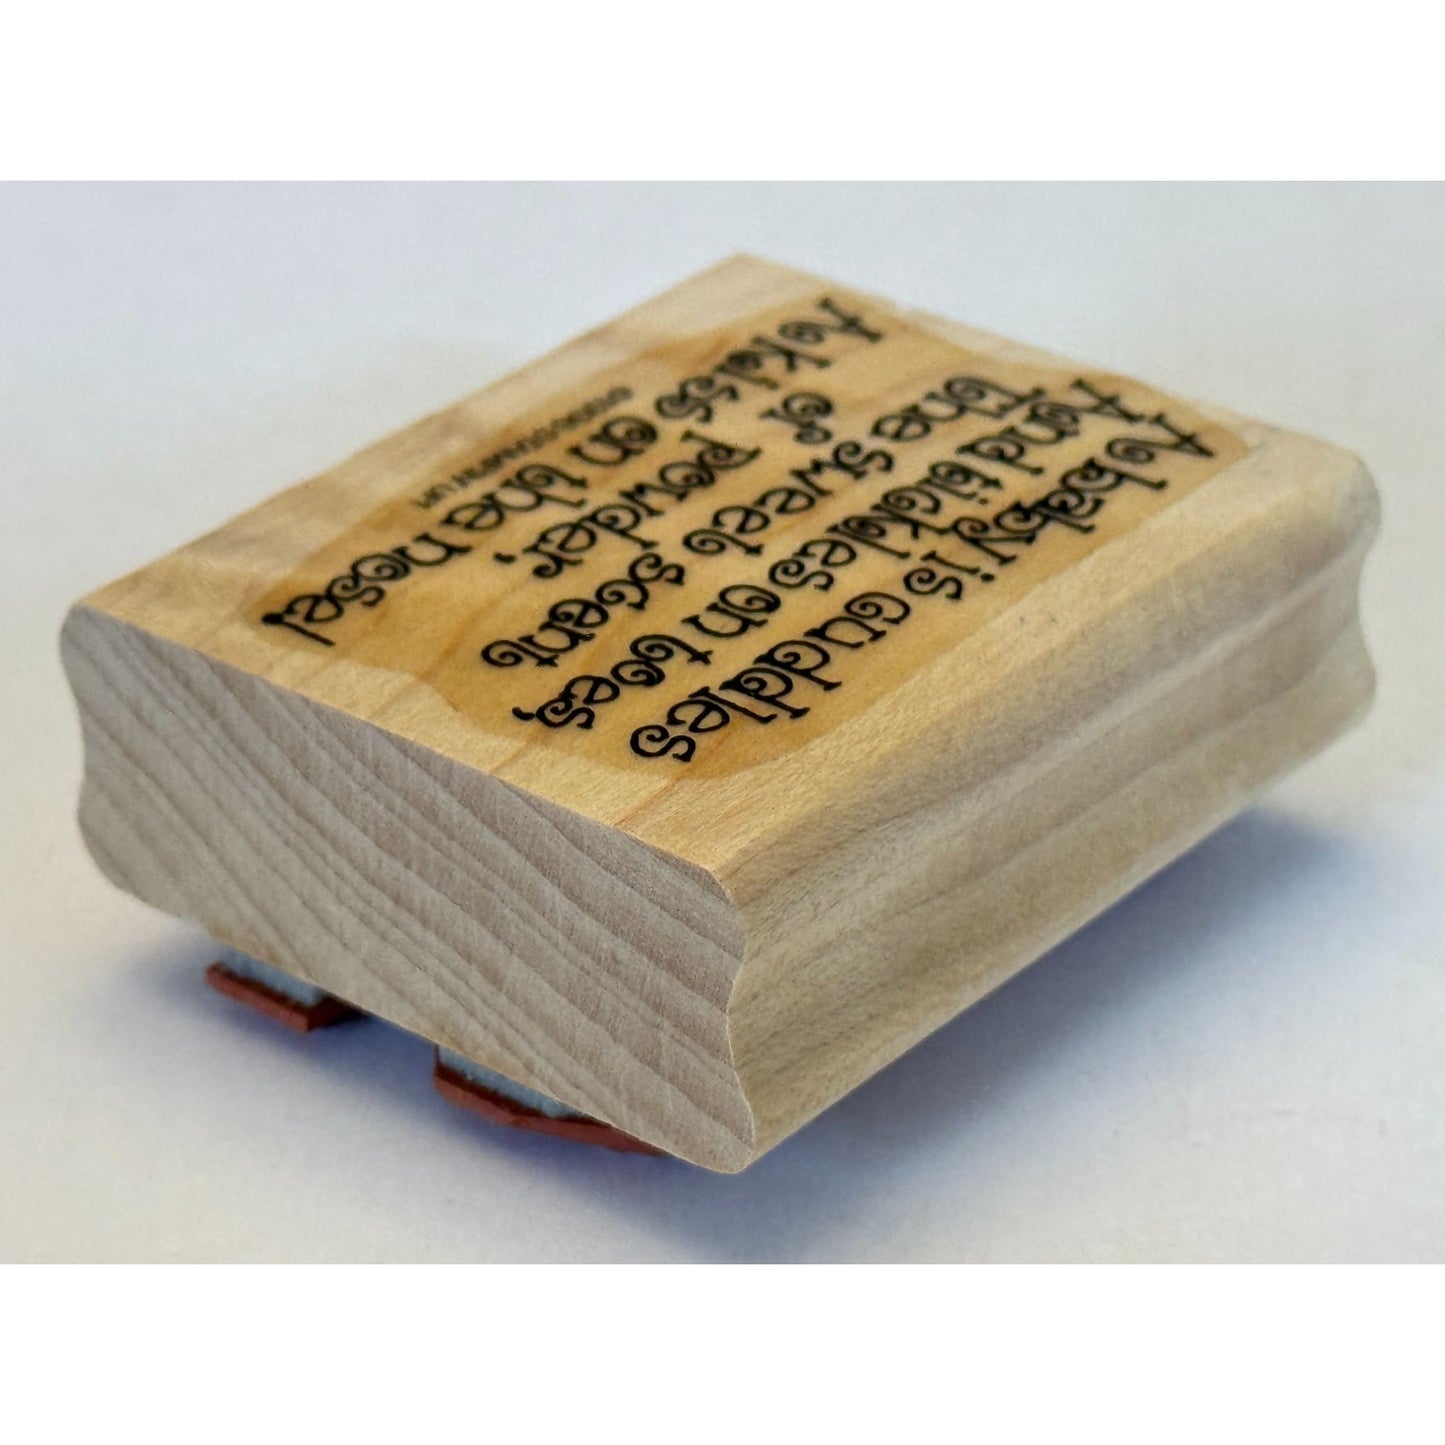 A baby is cuddles
And tickles on toes,
The sweet scent
of powder,
A kiss on the nose!
STAMPIN' UP!